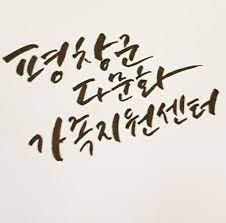 평창군
다문화
가족지원센터